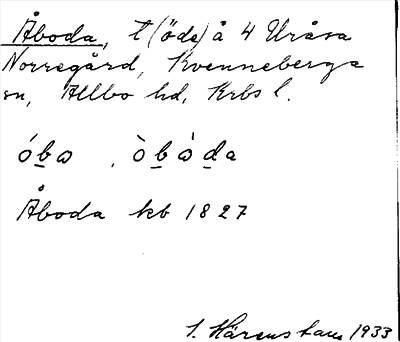 Åboda, t (öde) å 4 Uråsa
Norregård, Kvenneberga
sn, Allbo hd, Krbs l.
óbɷ , òbɷ̀da
Åboda kb 1827
1933